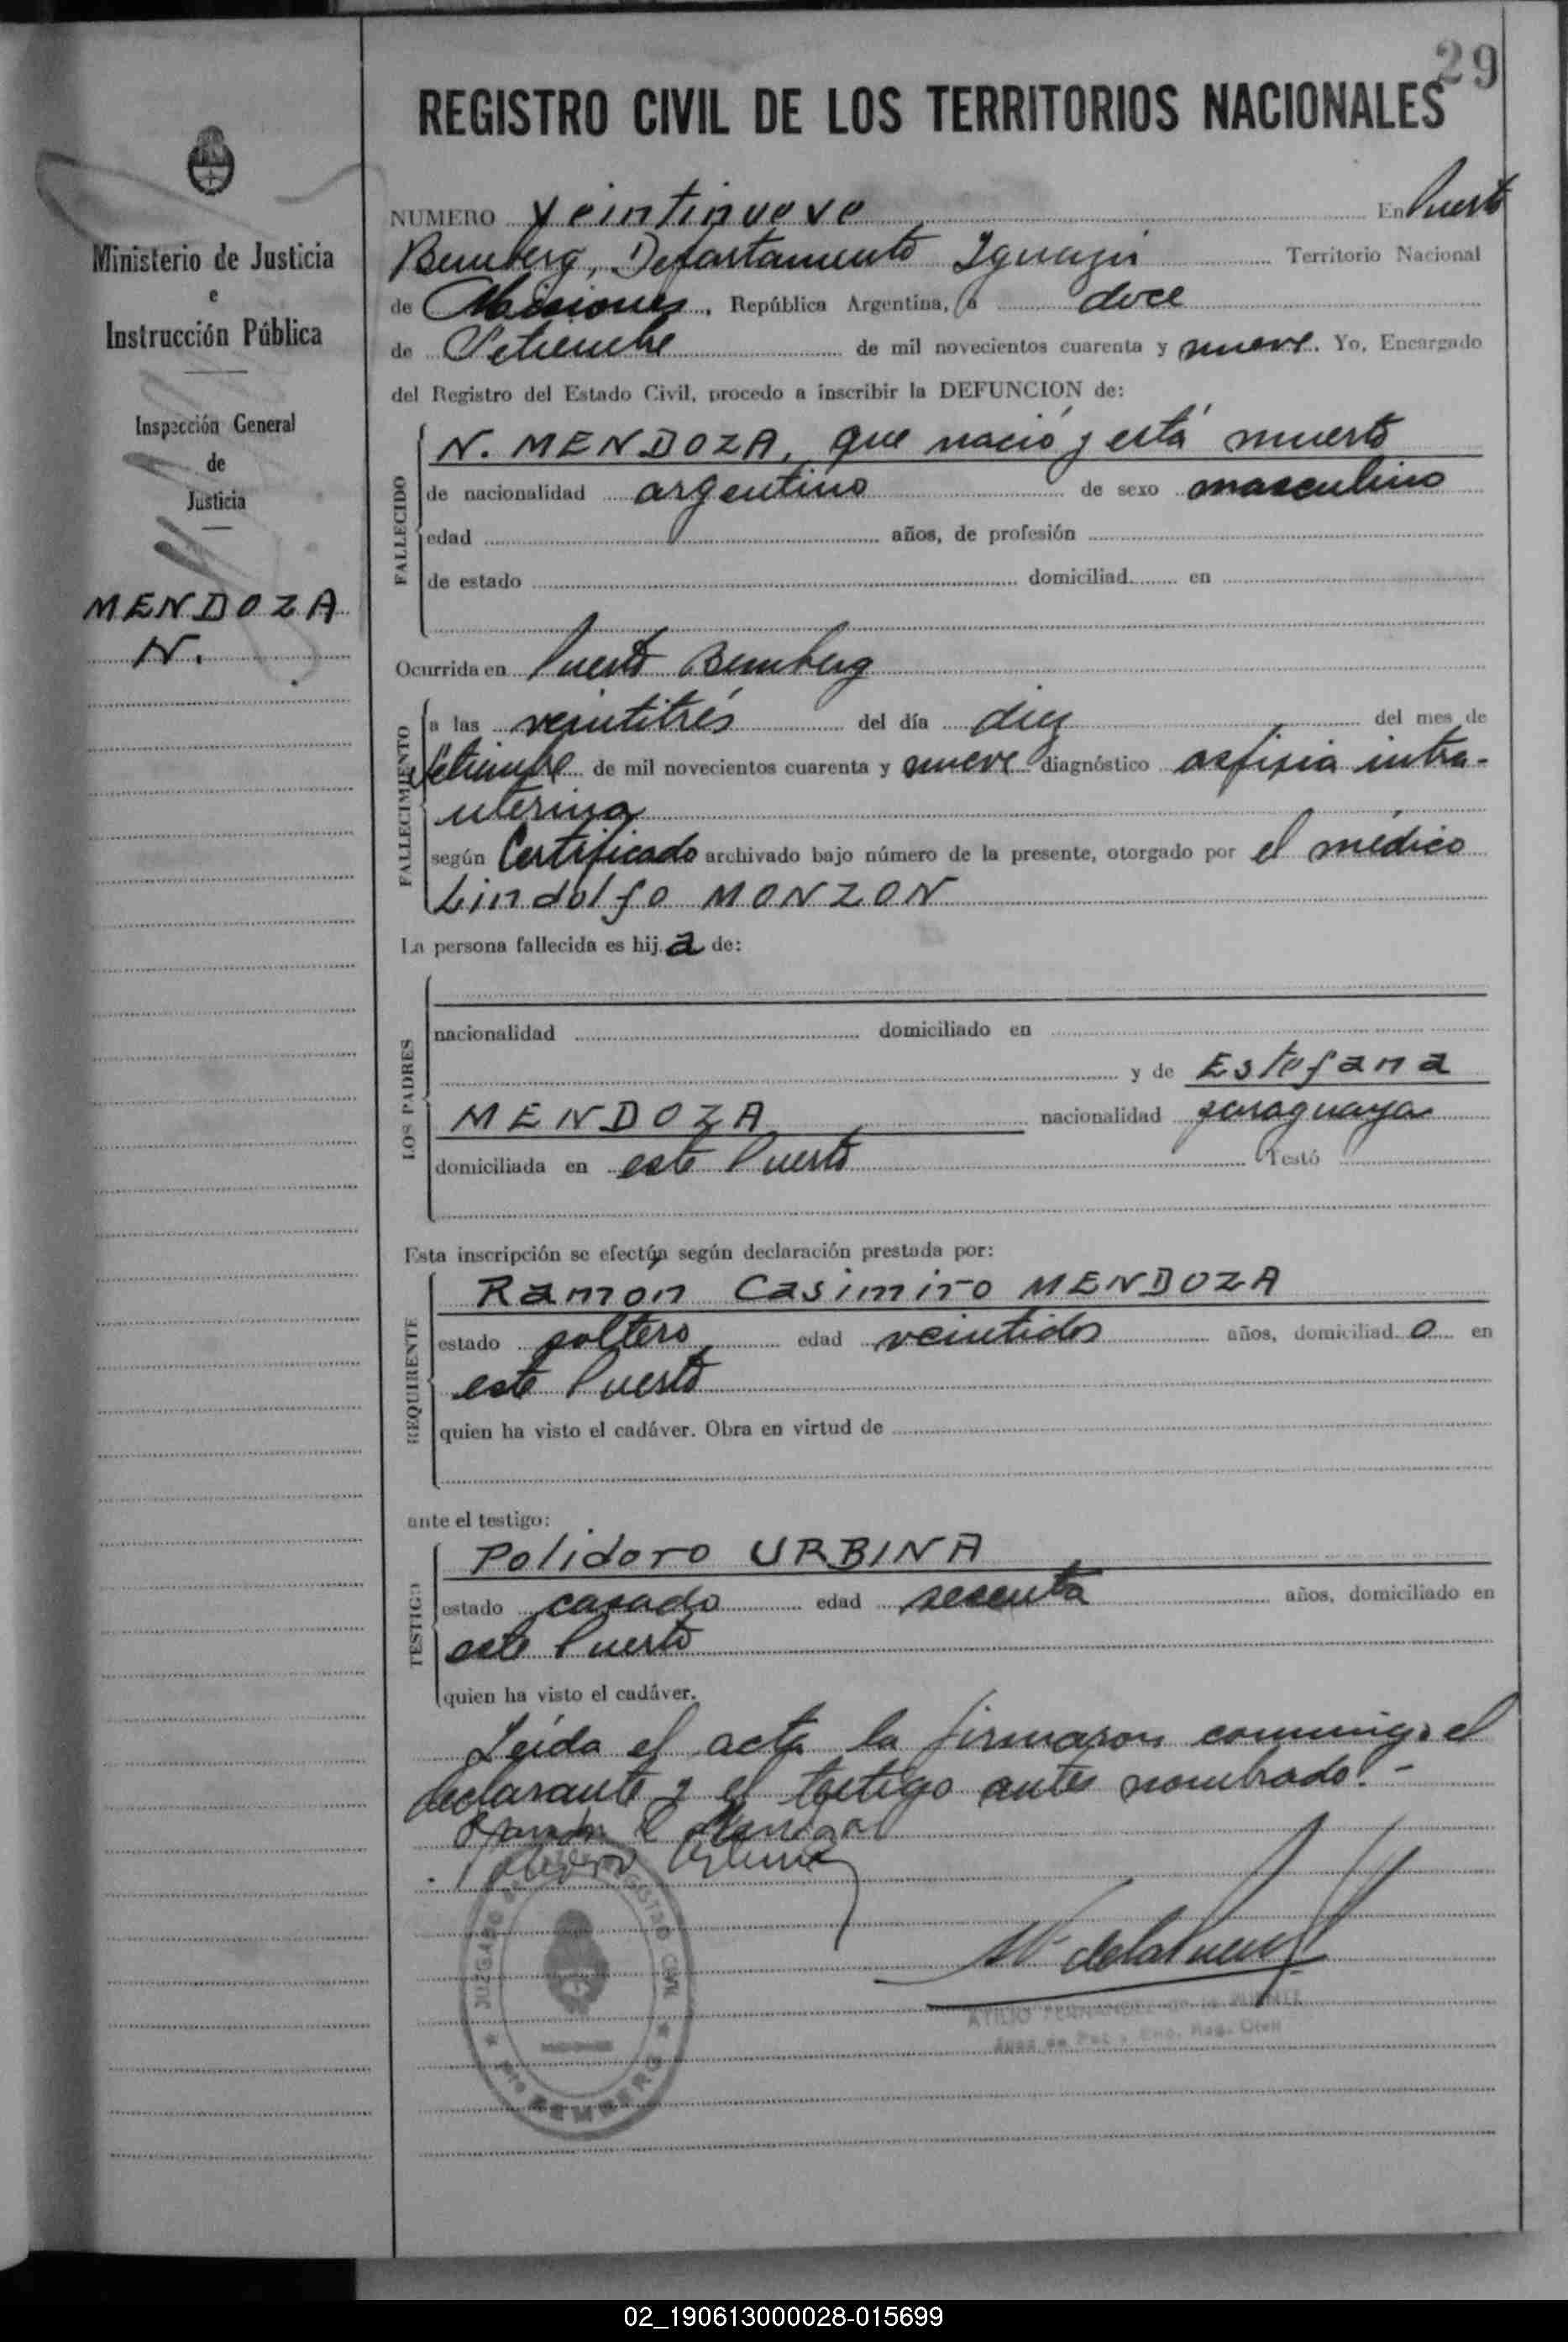 29
REGISTRO CIVIL DE LOS TERRITORIOS NACIONALES
Ministerio de Justicia
e
Instrucción Pública
Inspección General
de
Justicia
MENDOZA
N.
NUMERO Veintinueve En Puerto
Bemberg, Departamento Iguazú Territorio Nacional
de Misiones, República Argentina, a doce
de Setiembre de mil novecientos cuarenta y nueve. Yo, Encargado
del Registro del Estado Civil, procedo a inscribir la DEFUNCION de:
FALLECIDO
N. MENDOZA, que nació y está muerto
de nacionalidad argentino de sexo masculino
edad años, de profesión
de estado domiciliad en
Ocurrida en Puerto Bemberg
FALLECIMIENTO
a las veintitrés del día diez del mes de
Setiembre de mil novecientos cuarenta y nueve diagnóstico asfixia intra-
uterina
según Certificado archivado bajo número de la presente, otorgado por el médico
Lindolfo MONZON
La persona fallecida es hij a de:
LOS PADRES
nacionalidad domiciliado en
y de Estefana
MENDOZA nacionalidad paraguaya
domiciliada en este Puerto Testó
Esta inscripción se efectúa según declaración prestada por:
REQUIRENTE
Ramon Casimiro MENDOZA
estado soltero edad veintidos años, domiciliad o en
este Puerto
quien ha visto el cadáver. Obra en virtud de
ante el testigo:
TESTIGO
Polidoro URBINA
estado casado edad sesenta años, domiciliado en
este Puerto
quien ha visto el cadáver.
Leída el acta la firmaron conmigo el
declarante y el testigo antes nombrado.-
Ramon C Mendoza
JUZGADO REGISTRO CIVIL
Pto BEMBERG
ATILIO FERNANDEZ de la PUENTE
Juez de Paz y Enc. Reg. Civil
02_190613000028-015699